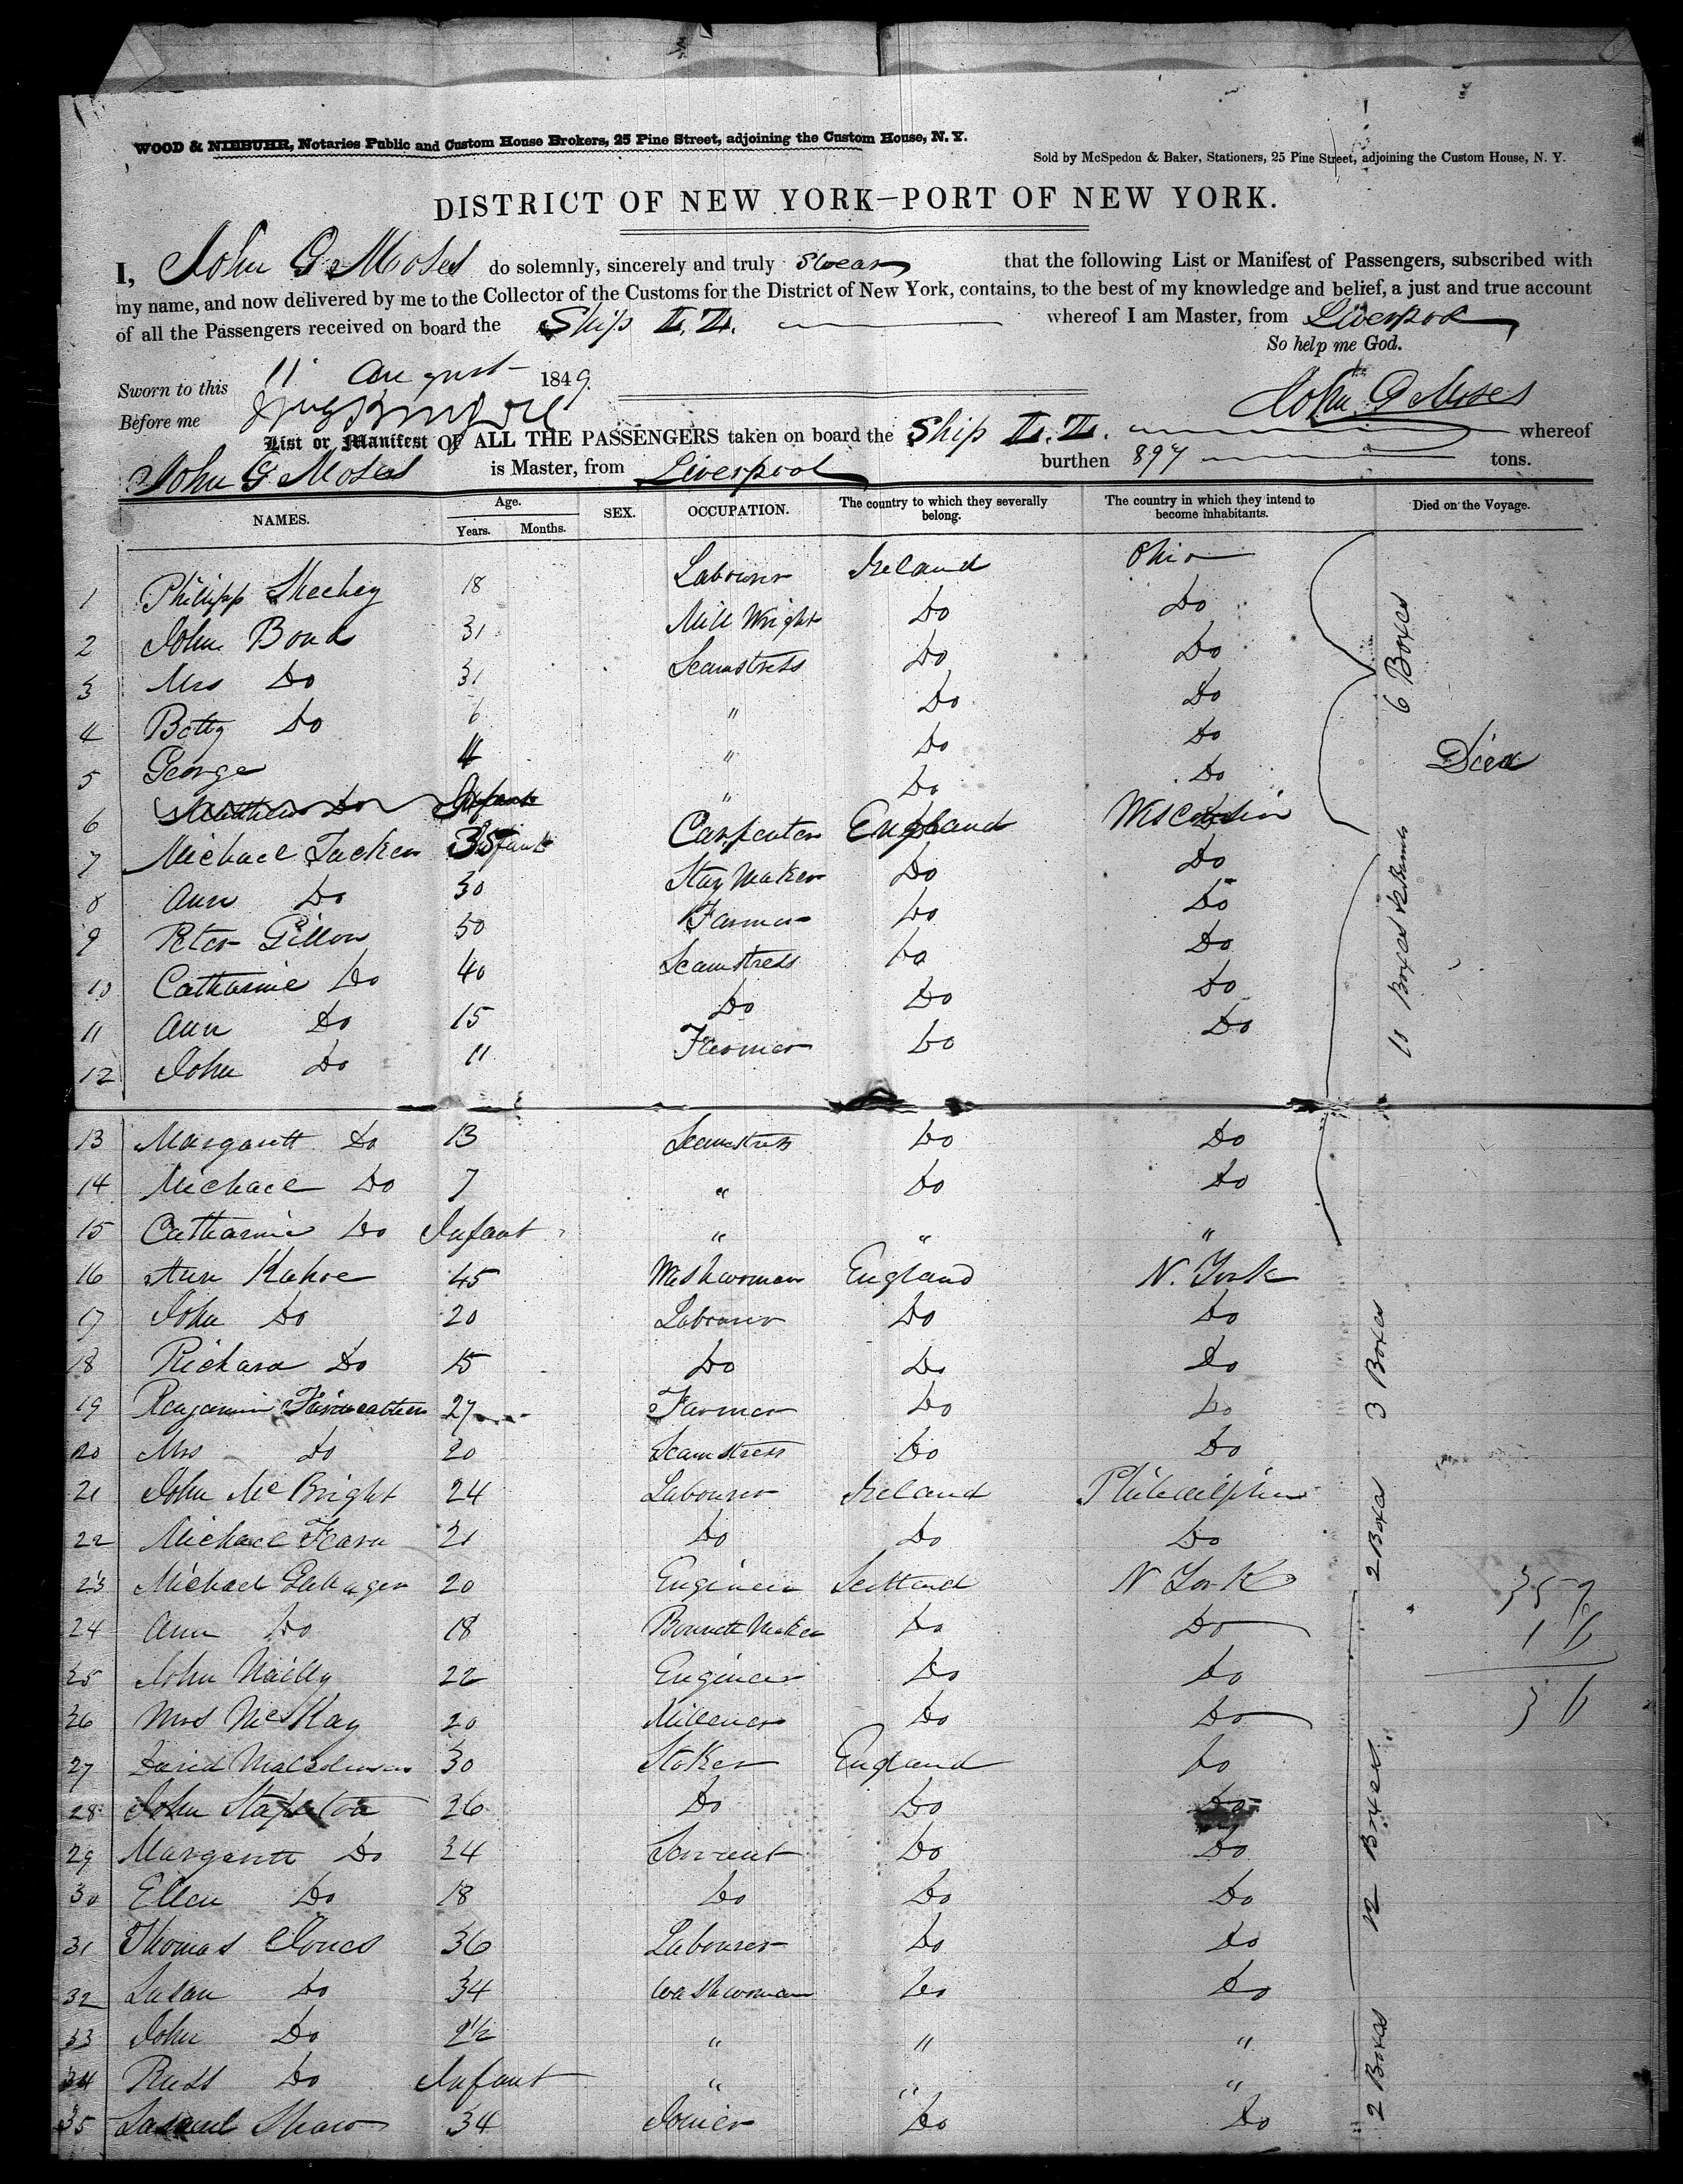 WOOD & NIEBUHR, Notaries Public and Custom House Brokers, 25 Pine Street, adjoining the Custom House, N. Y.
Sold by McSpedon & Baker, Stationers, 25 Pine Street, adjoining the Custom House, N. Y.
DISTRICT OF NEW YORK—PORT OF NEW YORK.
I, John G Moses do solemnly, sincerely and truly swear that the following List or Manifest of Passengers, subscribed with
my name, and now delivered by me to the Collector of the Customs for the District of New York, contains, to the best of my knowledge and belief, a just and true account
of all the Passengers received on board the Ship Z.Z. whereof I am Master, from Liverpool
So help me God.
Sworn to this 11 August 1849.
Before me
John G Moses
List or Manifest OF ALL THE PASSENGERS taken on board the Ship Z.Z. whereof
John G Moses is Master, from Liverpool burthen 897 tons.
NAMES. Age. Years. Months. SEX. OCCUPATION. The country to which they severally belong. The country in which they intend to become inhabitants. Died on the Voyage.
1 Philipp Sheehey 18 Labourer Ireland Ohio
2 John Bond 31 Mill Wright Do Do
3 Mrs Do 31 Seamstress Do Do
4 Betty Do 6 " Do Do
5 George 4 " Do Do
6 Matthew Do Infant " Do Do Died
6 Boxes
7 Michael Tucker 35 Carpenter England Wisconsin
8 Ann Do 30 Stay Maker Do Do
9 Peter Gillon 50 Farmer Do Do
10 Catharine Do 40 Seamstress Do Do
11 Ann Do 15 Do Do Do
12 John Do 11 Farmer Do Do
11 Boxes
13 Margarett Do 13 Seamstress Do Do
14 Michael Do 7 " Do Do
15 Catharine Do Infant " " "
16 Ann Kahoe 45 Washwoman England N. York
17 John Do 20 Labourer Do Do
18 Richard Do 15 Do Do Do
19 Benjamin Fairweather 27 Farmer Do Do
20 Mrs Do 20 Seamstress Do Do
3 Boxes
21 John McBright 24 Labourer Ireland Philadelphia
22 Michael Fearn 21 Do Do Do
2 Boxes
23 Michael Gallager 20 Engineer Scotland N York
24 Ann Do 18 Bonnett Maker Do Do
25 John Nailly 22 Engineer Do Do
26 Mrs McKay 20 Millener Do Do
27 David 30 Stoker England Do
28 John Stapleton 26 Do Do Do
29 Margarett Do 24 Servant Do Do
30 Ellen Do 18 Do Do Do
31 Thomas Jones 36 Labourer Do Do
32 Susan Do 34 Washwoman Do Do
12 Boxes.
33 John Do 2½ " " "
34 Do Infant " " "
35 Samuel Shaw 34 Joiner Do Do
2 Boxes